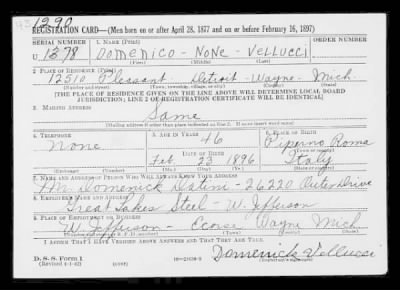 1290
REGISTRATION CARD—(Men born on or after April 28, 1877 and on or before February 16, 1897)
SERIAL NUMBER 1. NAME (Print) ORDER NUMBER
U 1378 DOMENICO - NONE - VELLUCCI
(First) (Middle) (Last)
2. PLACE OF RESIDENCE (Print)
12510 Pleasant Detroit Wayne Mich.
(Number and street) (Town, township, village, or city) (County) (State)
[THE PLACE OF RESIDENCE GIVEN ON THE LINE ABOVE WILL DETERMINE LOCAL BOARD
JURISDICTION; LINE 2 OF REGISTRATION CERTIFICATE WILL BE IDENTICAL]
3. MAILING ADDRESS
Same
(Mailing address if other than place indicated on line 2. If same insert word same)
4. TELEPHONE 5. AGE IN YEARS 6. PLACE OF BIRTH
None 46 Piperno Roma
DATE OF BIRTH (Town or county)
Feb 23 1896 Italy
(Mo.) (Day) (Yr.) (State or country)
7. NAME AND ADDRESS OF PERSON WHO WILL ALWAYS KNOW YOUR ADDRESS
Mr. Domenick Datini - 26220 Outer Drive
8. EMPLOYER'S NAME AND ADDRESS
Great Lakes Steel - W. Jefferson
9. PLACE OF EMPLOYMENT OR BUSINESS
W. Jefferson - Ecorse Wayne Mich
(Number and street or R. F. D. number) (Town) (County) (State)
I AFFIRM THAT I HAVE VERIFIED ABOVE ANSWERS AND THAT THEY ARE TRUE.
D. S. S. Form 1
(Revised 4-1-42) (over) 16—21630-2
Domenick Vellucci